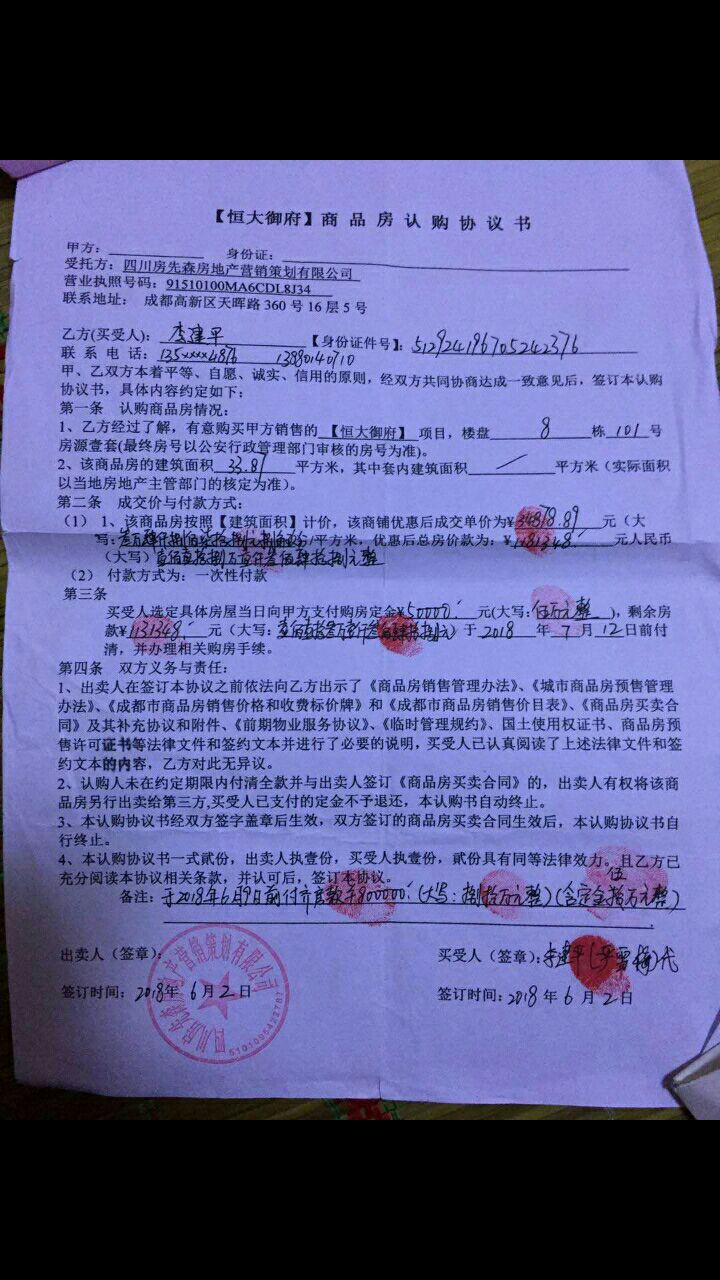 【恒大御府】商品房认购协议书
甲方： 身份证：
受托方：四川房先森房地产营销策划有限公司
营业执照号码：91510100MA6CDL8J34
联系地址： 成都高新区天晖路360号16层5号
乙方(买受人)：李建平 【身份证件号】：512924196705242376
联 系 电 话：135xxxx4876 13880140710
甲、乙双方本着平等、自愿、诚实、信用的原则，经双方共同协商达成一致意见后，签订本认购
协议书，具体内容约定如下：
第一条 认购商品房情况：
1、乙方经过了解，有意购买甲方销售的【恒大御府】项目，楼盘 8 栋 101 号
房源壹套(最终房号以公安行政管理部门审核的房号为准)。
2、该商品房的建筑面积 33.87 平方米，其中套内建筑面积 / 平方米（实际面积
以当地房地产主管部门的核定为准）。
第二条 成交价与付款方式：
（1） 1、该商品房按照【建筑面积】计价，该商铺优惠后成交单价为¥34878.89元（大
写：叁万肆仟捌佰柒拾捌元捌角玖分/平方米，优惠后总房价款为：¥1181348.元人民币
（大写）壹佰壹拾捌万壹仟叁佰肆拾捌元整
（2） 付款方式为：一次性付款
第三条
买受人选定具体房屋当日向甲方支付购房定金¥50000.元(大写：伍万元整)，剩余房
款¥1131348.元（大写：壹佰壹拾叁万壹仟叁佰肆拾捌元）于2018 年 7 月 12日前付
清，并办理相关购房手续。
第四条 双方义务与责任：
1、出卖人在签订本协议之前依法向乙方出示了《商品房销售管理办法》、《城市商品房预售管理
办法》、《成都市商品房销售价格和收费标价牌》和《成都市商品房销售价目表》、《商品房买卖合
同》及其补充协议和附件、《前期物业服务协议》、《临时管理规约》、国土使用权证书、商品房预
售许可证书等法律文件和签约文本并进行了必要的说明，买受人已认真阅读了上述法律文件和签
约文本的内容，乙方对此无异议。
2、认购人未在约定期限内付清全款并与出卖人签订《商品房买卖合同》的，出卖人有权将该商
品房另行出卖给第三方,买受人已支付的定金不予退还，本认购书自动终止。
3、本认购协议书经双方签字盖章后生效，双方签订的商品房买卖合同生效后，本认购协议书自
行终止。
4、本认购协议书一式贰份，出卖人执壹份，买受人执壹份，贰份具有同等法律效力。且乙方已
充分阅读本协议相关条款，并认可后，签订本协议。
伍
备注：于2018年6月9日前付齐房款¥800000.(大写：捌拾万元整)(含定金拾万元整)
出卖人（签章）： 买受人（签章）：李建平(代
签订时间：2018年 6月2日 签订时间：2018年 6月2日
四川房先森房地产营销策划有限公司